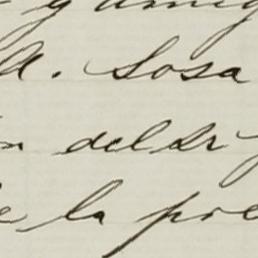 y amig
A. Sosa
n del Sr
e la pre